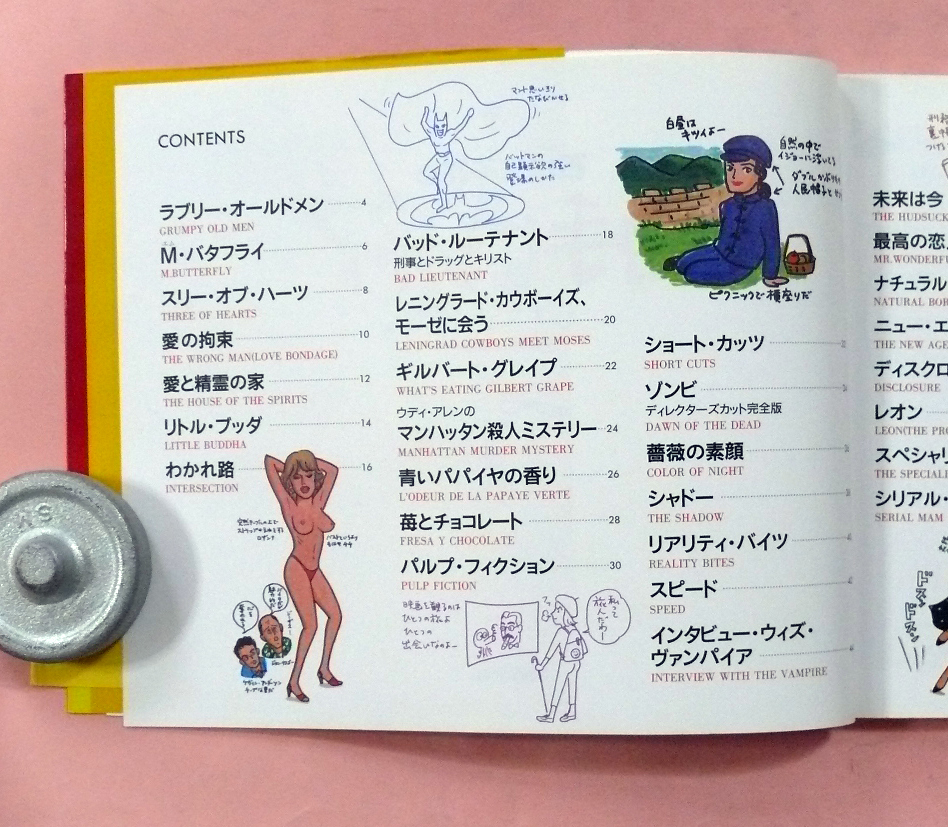 CONTENTS
ラブリー・オールドメン 4
GRUMPY OLD MEN
M・バタフライ 6
M.BUTTERFLY
スリー・オブ・ハーツ 8
THREE OF HEARTS
愛の拘束 10
THE WRONG MAN(LOVE BONDAGE)
愛と精霊の家 12
THE HOUSE OF THE SPIRITS
リトル・ブッダ 14
LITTLE BUDDHA
わかれ路 16
INTERSECTION
マント思いきり
たなびかせる
バットマンの
自己顕示欲の強い
登場のしかた
バッド・ルーテナント 18
刑事とドラッグとキリスト
BAD LIEUTENANT
レニングラード・カウボーイズ、
モーゼに会う 20
LENINGRAD COWBOYS MEET MOSES
ギルバート・グレイプ 22
WHAT'S EATING GILBERT GRAPE
ウディ・アレンの
マンハッタン殺人ミステリー 24
MANHATTAN MURDER MYSTERY
青いパパイヤの香り 26
L'ODEUR DE LA PAPAYE VERTE
苺とチョコレート 28
FRESA Y CHOCOLATE
パルプ・フィクション 30
PULP FICTION
映画を観るのは
ひとつの旅よ
ひとつの
出会いなのよー
私って
旅人だわー!
白昼は
キツイよー
自然の中で
イジョーに浮いてる
ピクニックで横座りだ
ショート・カッツ
SHORT CUTS
ゾンビ
ディレクターズカット完全版
DAWN OF THE DEAD
薔薇の素顔
COLOR OF NIGHT
シャドー
THE SHADOW
リアリティ・バイツ
REALITY BITES
スピード
SPEED
インタビュー・ウィズ・
ヴァンパイア
INTERVIEW WITH THE VAMPIRE
未来は今
THE HUDSUCK
最高の恋
MR.WONDERFU
ナチュラル
NATURAL BOR
ニュー・エ
THE NEW AGE
ディスクロ
DISCLOSURE
レオン
LEON(THE PRO
スペシャリ
THE SPECIALI
シリアル・
SERIAL MAM
ドスッ
ドスッ